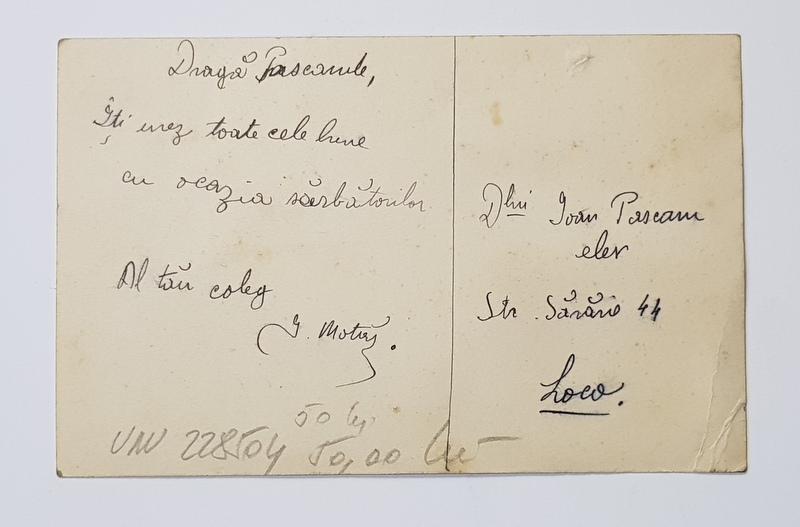 Dragă Pascanule,
Îți urez toate cele bune
cu ocazia sărbătorilor
Al tău coleg
I. Motaș.
50 lei
UNV 228504 50,00 lei
Dlui Ioan Pascanu
elev
Str. Sărărie 44
Loco.